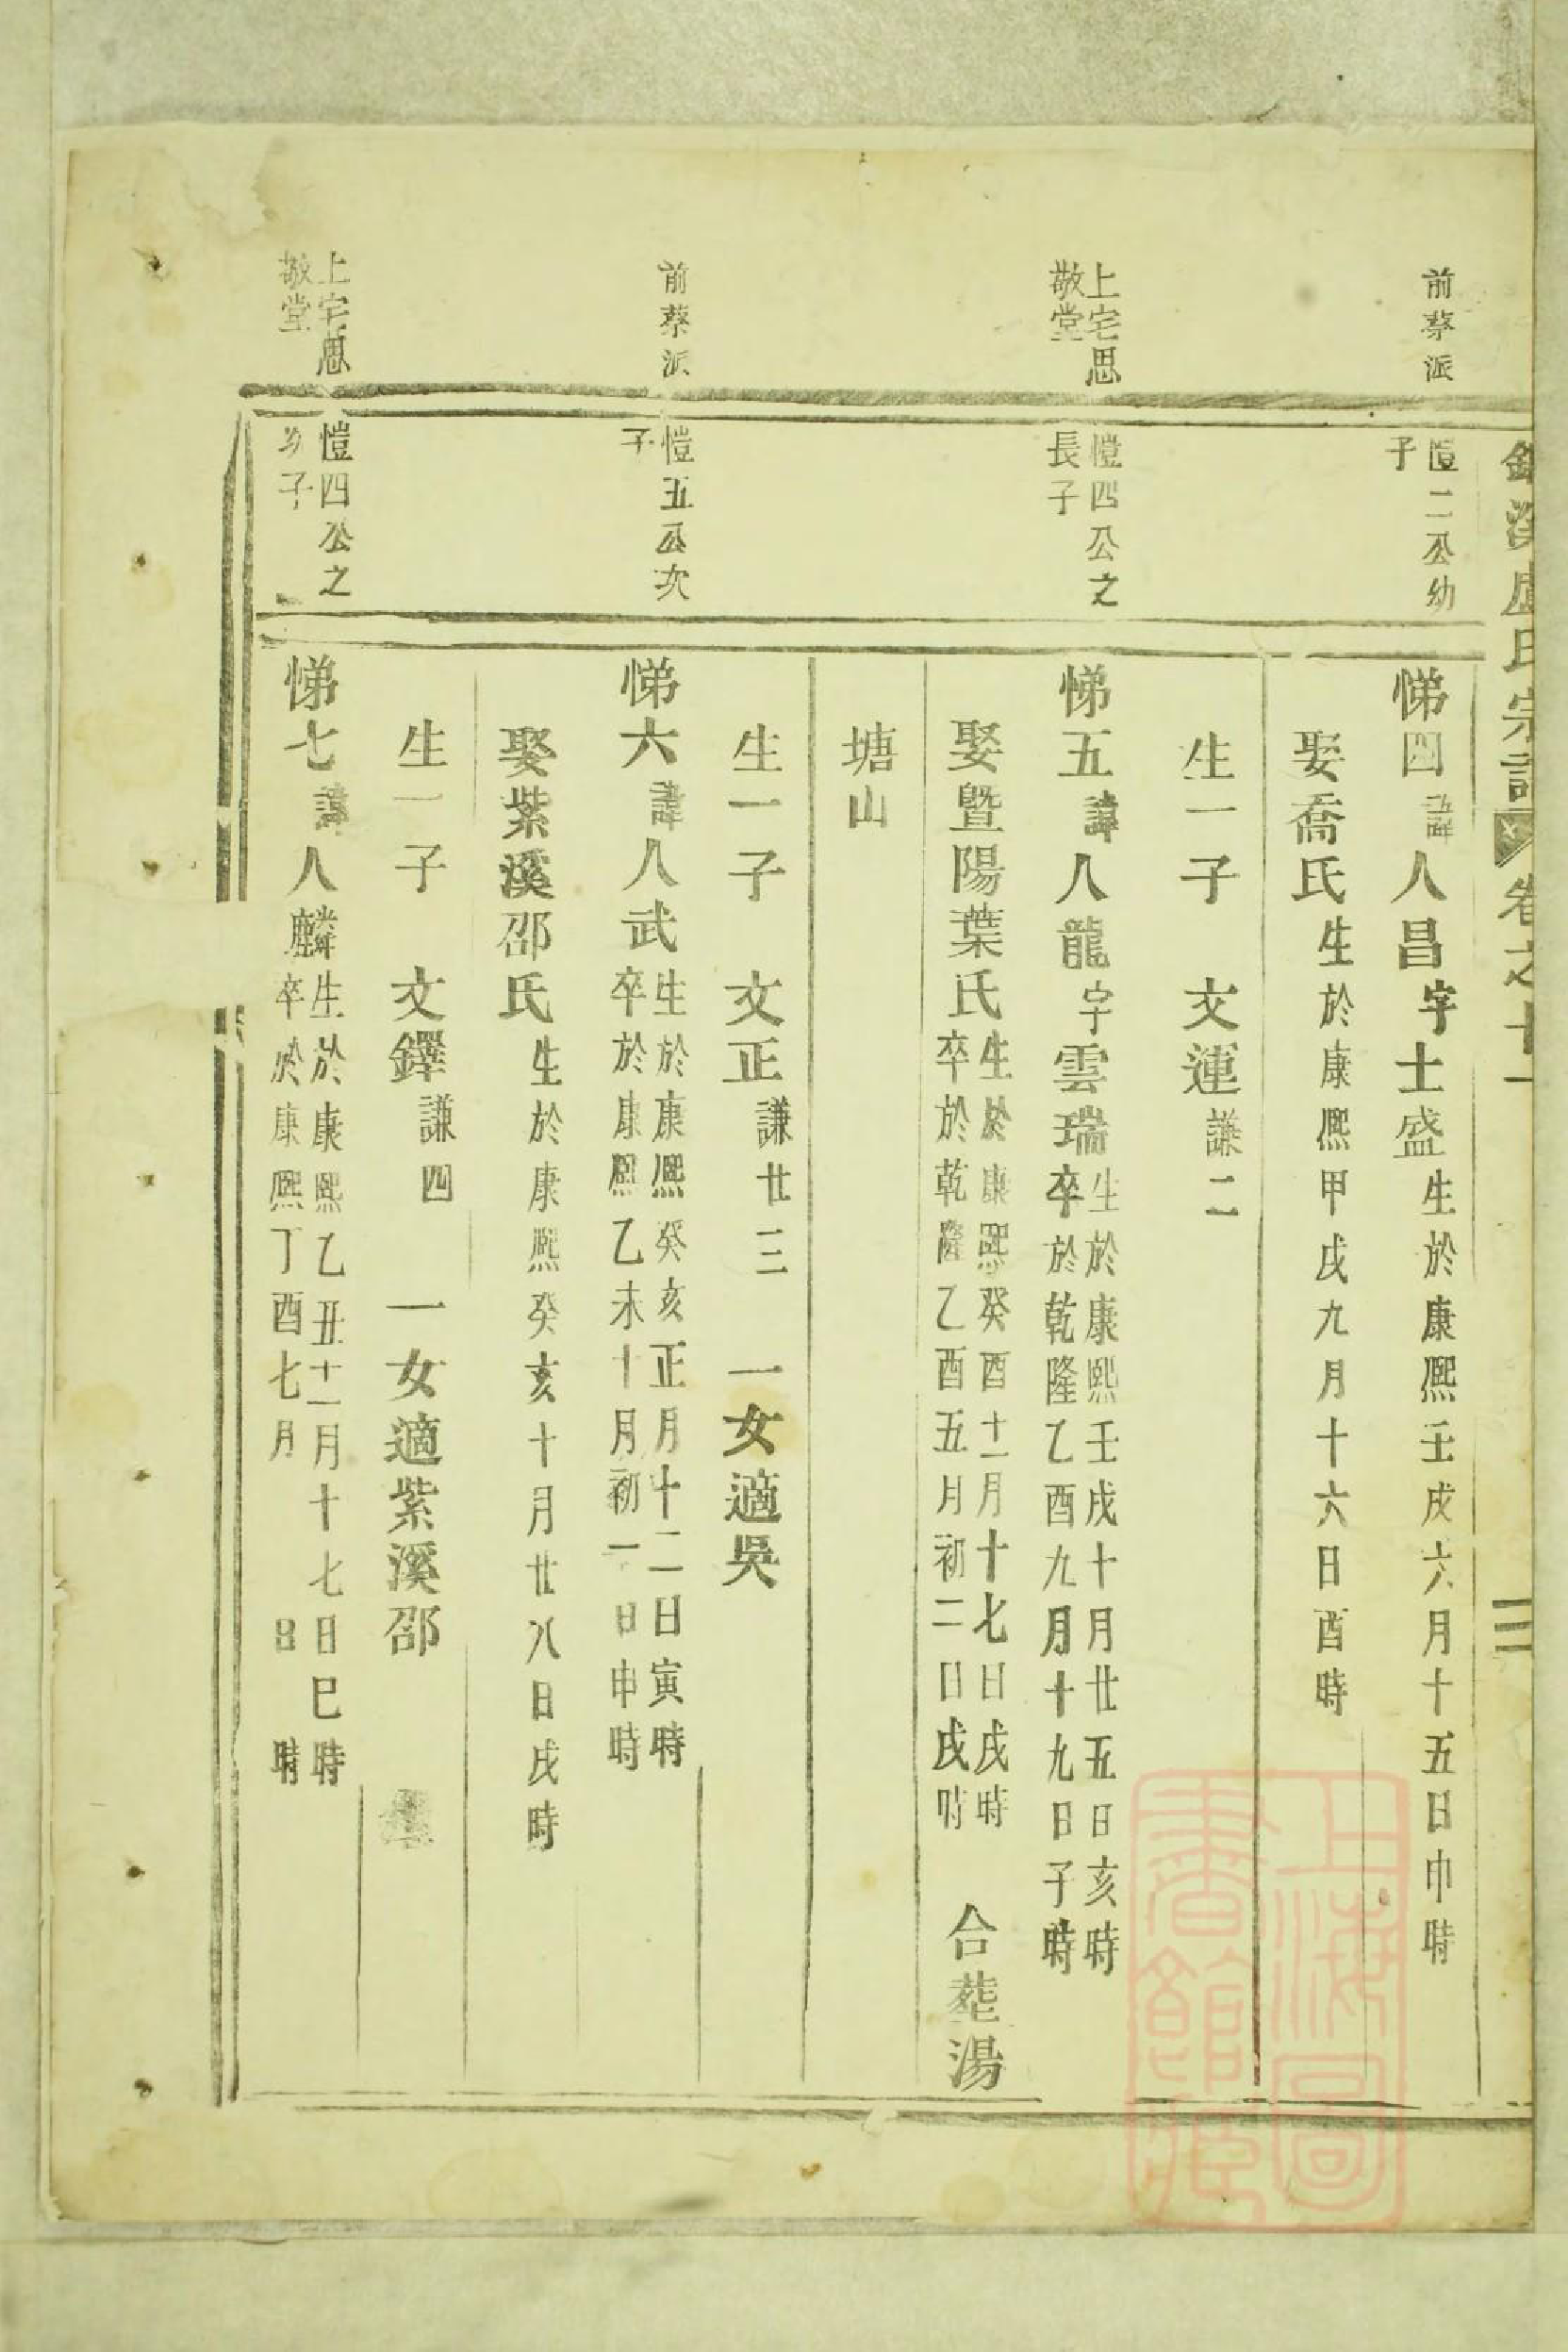 溪盧氏宗譜 卷之十一
前蔡派
愷二公幼
子
悌四諱人昌字士盛生於康熙壬戌六月十五日巾時
娶喬氏生於康熙甲戌九月十六日酉時
生一子 文運謙二
上宅思
敬堂
愷四公之
長子
悌五諱人龍字雲瑞生於康熙壬戌十月廿五日亥時
卒於乾隆乙酉九月十九日子時
娶暨陽葉氏生於康熙癸酉十一月十七日戌時
卒於乾隆乙酉五月初二日戌時
合塟湯
塘山
生一子 文正謙廿三 一女適吳
前蔡派
愷五公次
子
悌六諱人武生於康熙癸亥正月十二日寅時
卒於康熙乙未十月初一日申時
娶紫溪邵氏生於康熙癸亥十月廿八日戌時
生一子 文鐸謙四 一女適紫溪邵
上宅思
敬堂
愷四公之
次子
悌七諱人麟生於康熙乙丑十一月十七日巳時
卒於康熙丁酉七月 日 時
上海圖
書館藏